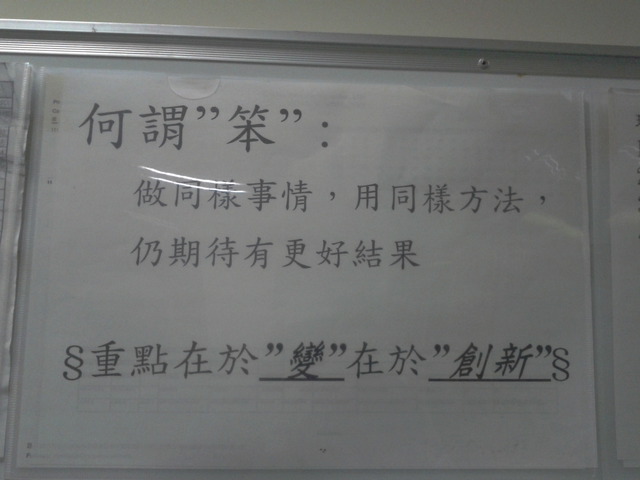 何謂”笨”：
做同樣事情，用同樣方法，
仍期待有更好結果
§重點在於”變”在於”創新”§